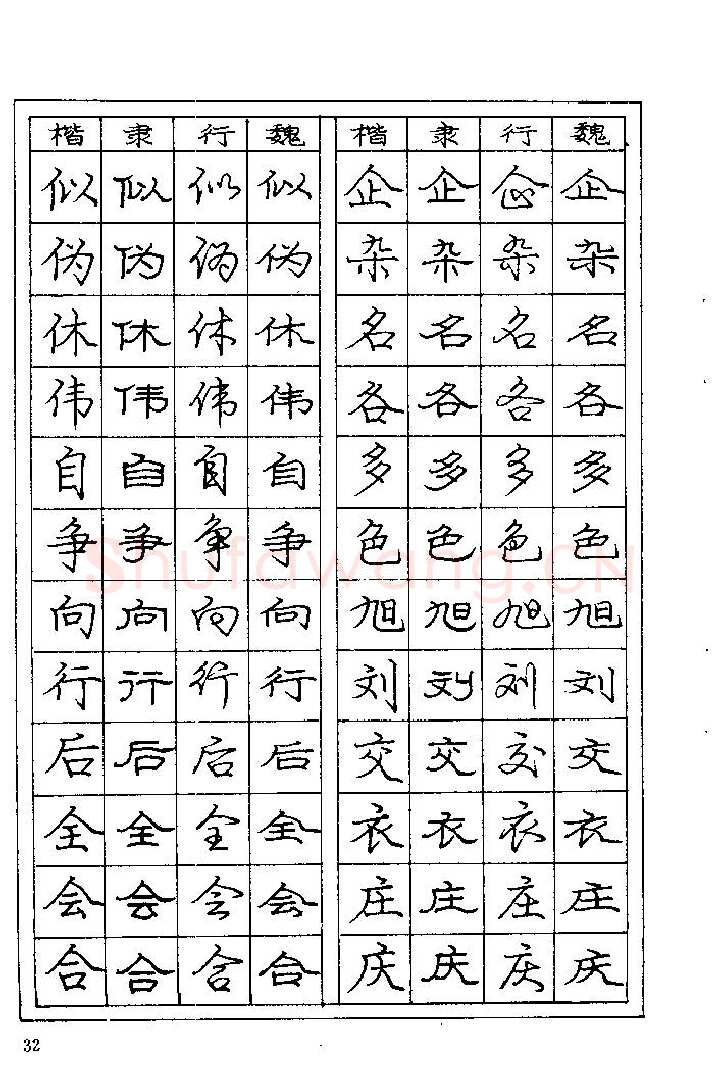 楷 隶 行 魏 楷 隶 行 魏
似 似 似 似 企 企 企 企
伪 伪 伪 伪 杂 杂 杂 杂
休 休 休 休 名 名 名 名
伟 伟 伟 伟 各 各 各 各
自 自 自 自 多 多 多 多
争 争 争 争 色 色 色 色
Shufawang.CN
向 向 向 向 旭 旭 旭 旭
行 行 行 行 刘 刘 刘 刘
后 后 后 后 交 交 交 交
全 全 全 全 衣 衣 衣 衣
会 会 会 会 庄 庄 庄 庄
合 合 合 合 庆 庆 庆 庆
32